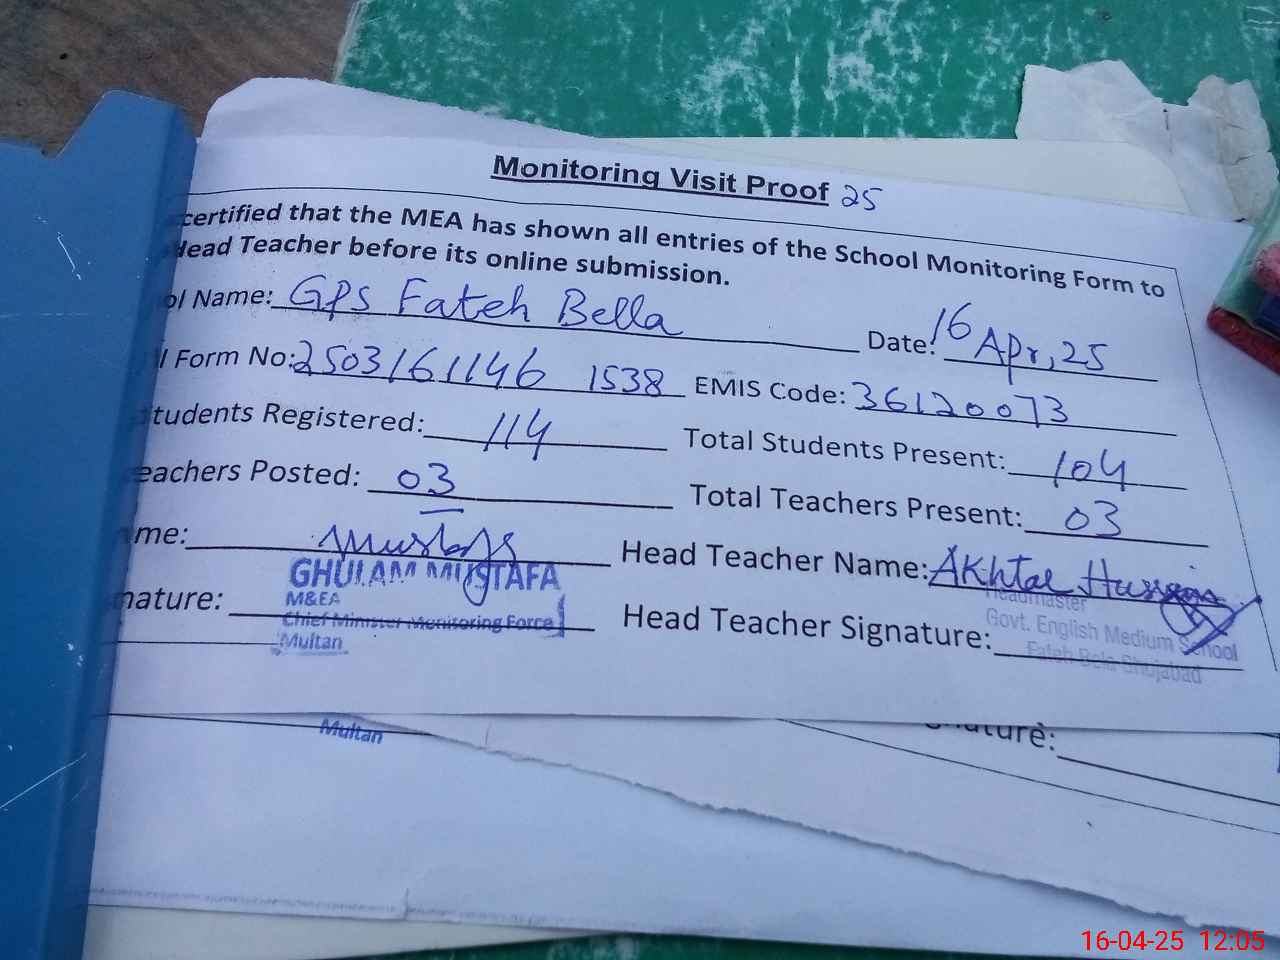 Monitoring Visit Proof 25
certified that the MEA has shown all entries of the School Monitoring Form to
Head Teacher before its online submission.
ol Name: GPS Fateh Bella Date: 16 Apr, 25
l Form No: 2503161146 1538 EMIS Code: 36120073
tudents Registered: 114 Total Students Present: 104
eachers Posted: 03 Total Teachers Present: 03
me: Mustafa Head Teacher Name: Akhtar Hussain
GHULAM MUSTAFA
M&EA
Chief Minister Monitoring Force
Multan
nature: Head Teacher Signature:
Headmaster
Govt. English Medium School
Fateh Bela Shujabad
Multan
nature:
16-04-25 12:05